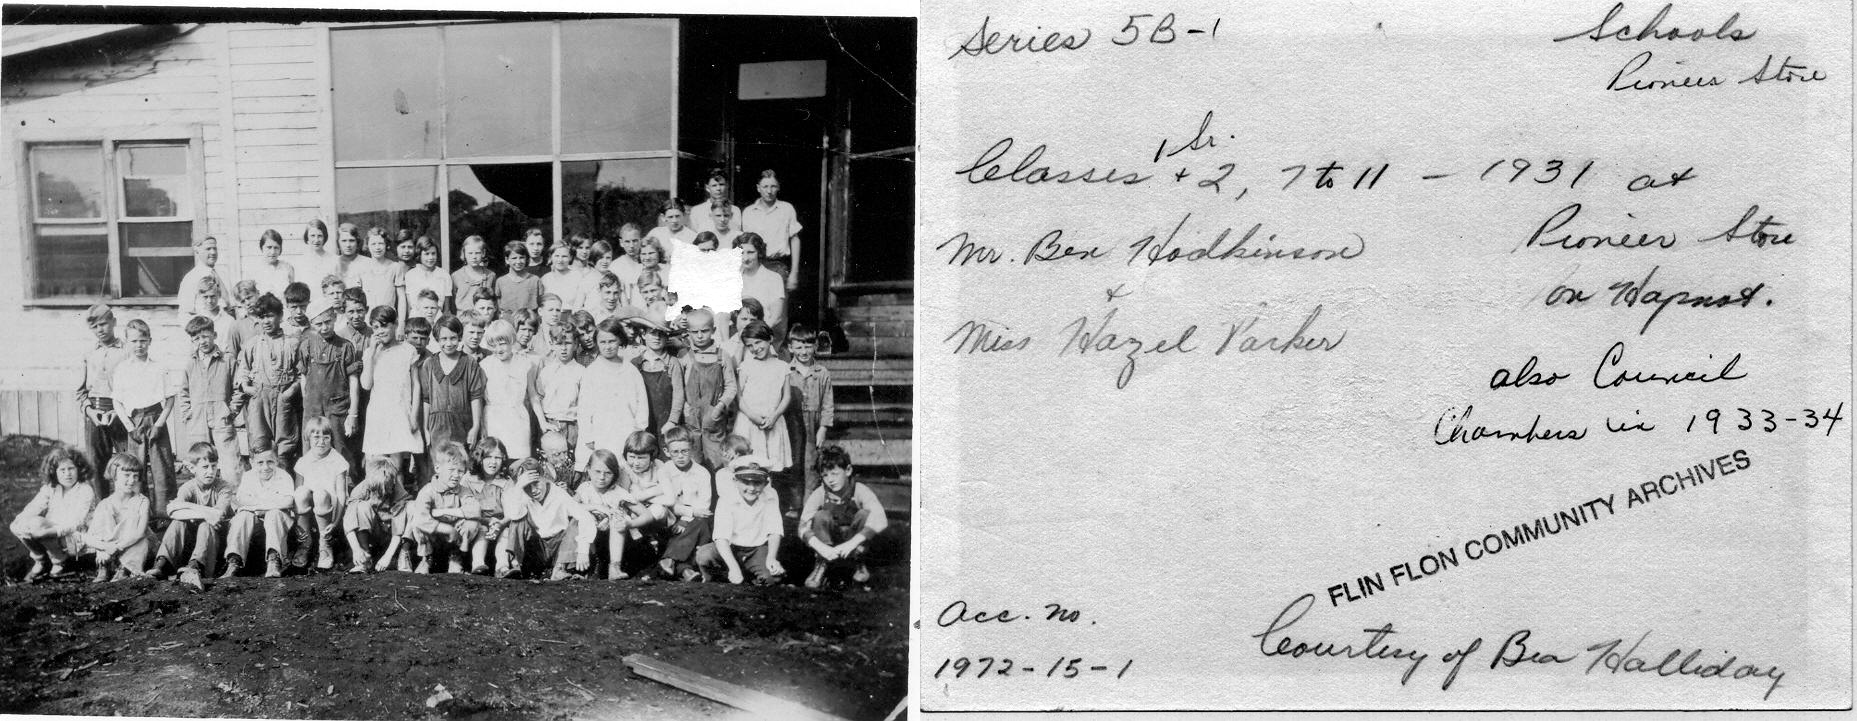 Series 5B-1
Schools
Pioneer Store
Classes 1 Sr. + 2, 7 to 11 - 1931 at
Mr. Ben Hodkinson
Pioneer Store
+
on Hapnot.
Miss Hazel Parker
also Council
Chambers in 1933-34
FLIN FLON COMMUNITY ARCHIVES
Acc. no.
1972-15-1
Courtesy of Bea Halliday